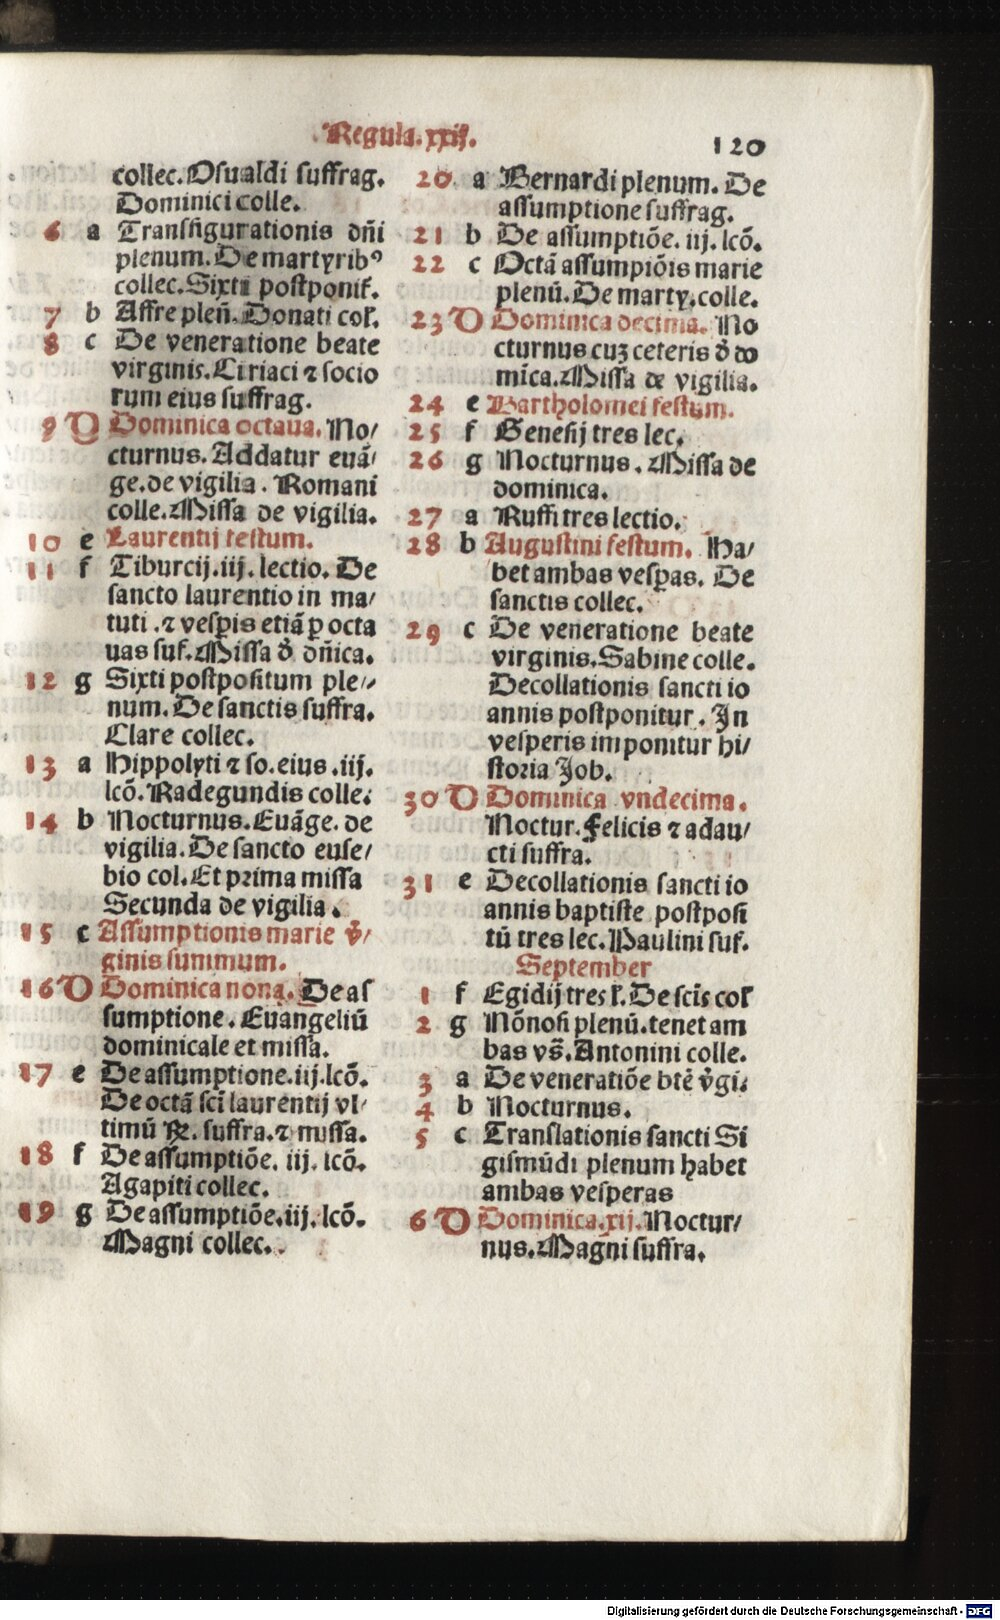 Regula.xxij.
120
collec.Osualdi suffrag.
Dominici colle.
6 a Transfigurationis dñi
plenum.De martyribꝰ
collec.Sixti postponit̉.
7 b Affre pleñ.Donati col̉.
8 c De veneratione beate
virginis.Ciriaci ⁊ socio
rum eius suffrag.
9 D Dominica octaua.No/
cturnus.Addatur euã/
ge.de vigilia.Romani
colle.Missa de vigilia.
10 e Laurentij festum.
11 f Tiburcij.iij.lectio.De
sancto laurentio in ma/
tuti.⁊ vesꝑis etiã ꝑ octa
uas suf.Missa d̉ dñica.
12 g Sixti postpositum ple/
num.De sanctis suffra.
Clare collec.
13 a Hippolyti ⁊ so.eius.iij.
lcõ.Radegundis colle.
14 b Nocturnus.Euãge.de
vigilia.De sancto euse/
bio col.Et prima missa
Secunda de vigilia.
15 c Assumptionis marie v̉/
ginis summum.
16 D Dominica nona.De as
sumptione.Euangeliũ
dominicale et missa.
17 e De assumptione.iij.lcõ.
De octã sci̅ laurentij vl/
timũ ꝶ.suffra.⁊ missa.
18 f De assumptiõe.iij.lcõ.
Agapiti collec.
19 g De assumptiõe.iij.lcõ.
Magni collec.
20 a Bernardi plenum.De
assumptione suffrag.
21 b De assumptiõe.iij.lcõ.
22 c Octã assumpiõis marie
plenũ.De marty.colle.
23 D Dominica decima.No
cturnus cuȝ ceteris d̉ do
mi̅ca.Missa de vigilia.
24 e Bartholomei festum.
25 f Genesij tres lec.
26 g Nocturnus.Missa de
dominica.
27 a Ruffi tres lectio.
28 b Augustini festum. Ha/
bet ambas vesꝑas. De
sanctis collec.
29 c De veneratione beate
virginis.Sabine colle.
Decollationis sancti io
annis postponitur.In
vesperis imponitur hi/
storia Job.
30 D Dominica vndecima.
Noctur.Felicis ⁊ adau/
cti suffra.
31 e Decollationis sancti io
annis baptiste postposi
tũ tres lec.Paulini suf.
September
1 f Egidij tres l̉.De sci̅s col̉
2 g Nõnosi plenũ.tenet am
bas vs̃.Antonini colle.
3 a De veneratiõe btẽ v̉gi.
4 b Nocturnus.
5 c Translationis sancti Si
gismũdi plenum habet
ambas vesperas
6 D Dominica.xij.Noctur/
nus.Magni suffra.
Digitalisierung gefördert durch die Deutsche Forschungsgemeinschaft - DFG